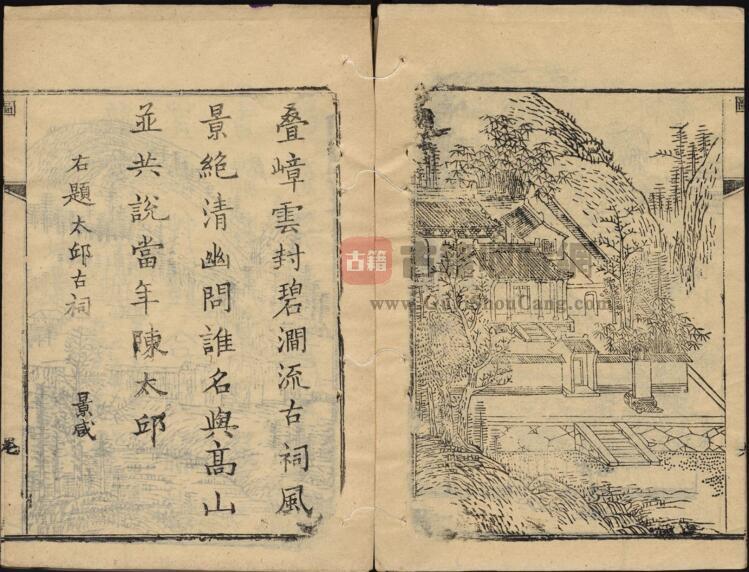 叠嶂雲封碧澗流古祠風
景絶清幽問誰名與髙山
並共說當年陳太邱
右題太邱古祠
景咸
古籍
www.GuJiShouCang.com